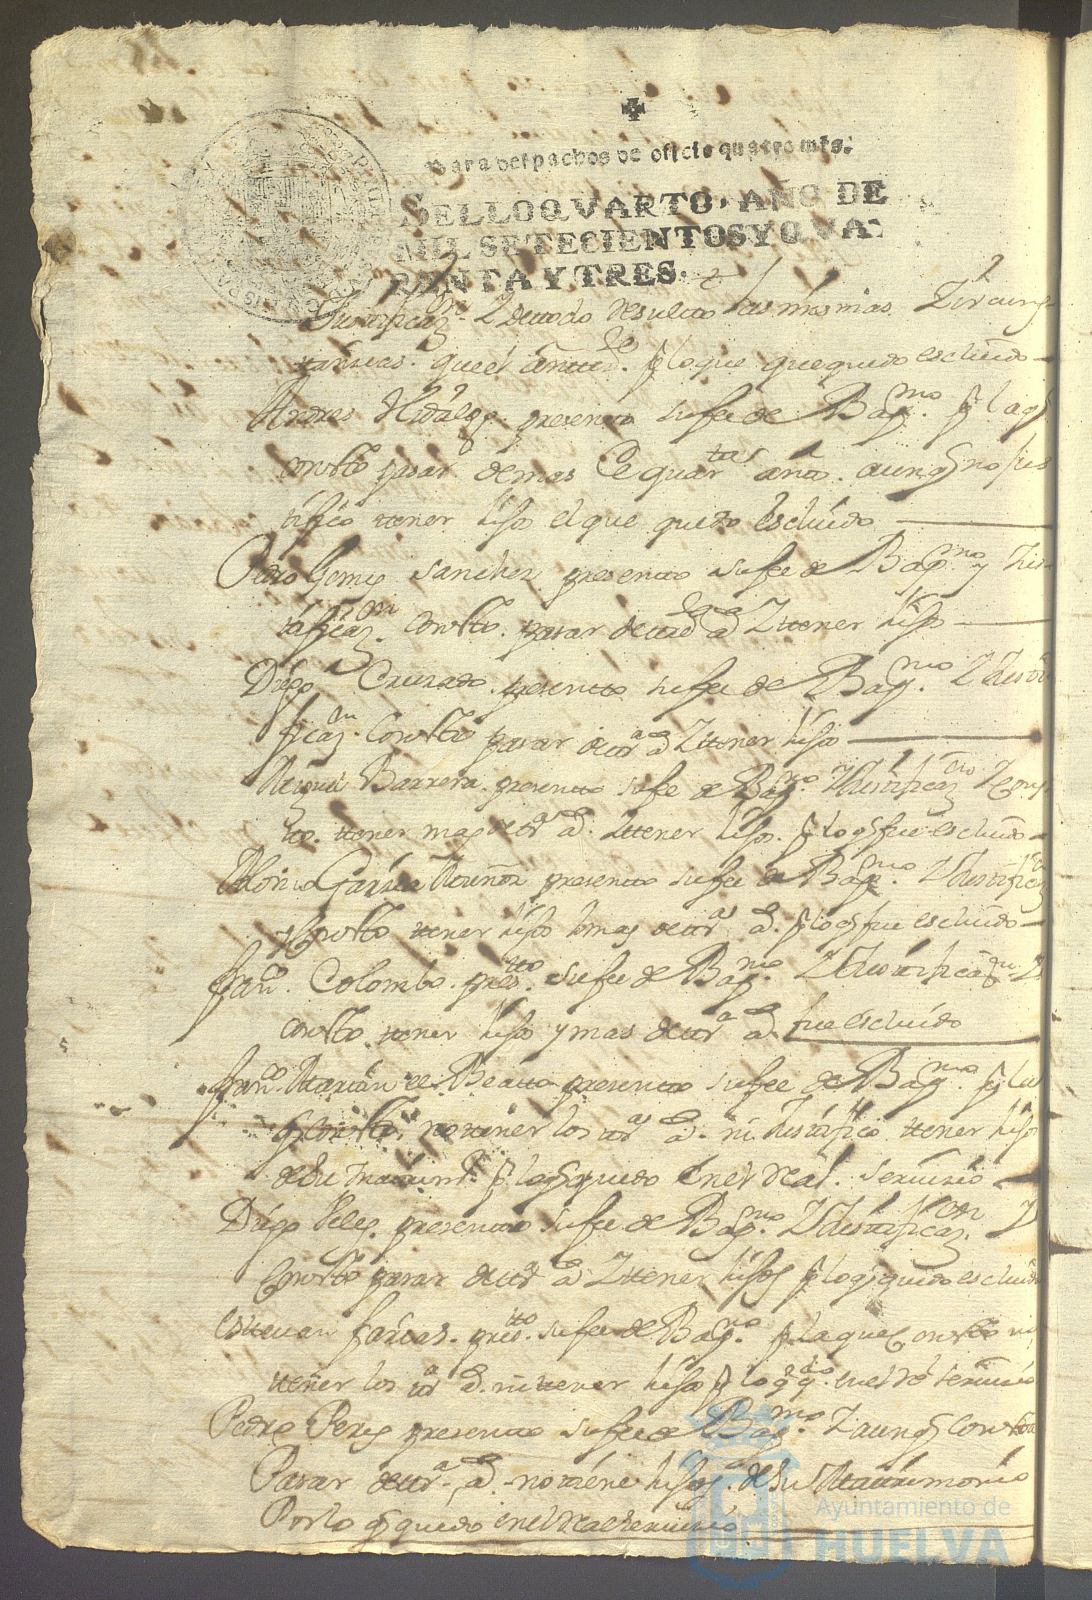 Para despachos de oficio quatro mrs.
SELLO QVARTO, AÑO DE
MIL SETECIENTOS Y QVA-
RENTA Y TRES.
Justificaz.n Y de todo resulto las mismas Zircuns
tanzias que el antte.de p lo que quedo escluido
Andres Hidalgo presento su fee de Bap.mo p la q
consto pasar de mas de quar.tas años aunq no jus
tifico tener hijo el que quedo Escluido
Pedro Gomez Sanchez presento su fee de Bap.mo y Jus
tificaz.n consto pasar de ttr.a a.s Y ttener hijo
Diego Cruzado presento su fee de Bap.mo Y Justi
ficaz.n Consto pasar de ttr.a a.s Y ttener hijo
Barrera presento su fee de Bap.mo Y Justificaz.on Y Cons
to ttener mas de ttr.a a.s Y ttener hijo p lo q fue escluido
Alonso Garzia Muñoz presento su fee de Bap.mo Y Justificaz.n
Consto ttener hijo y mas de ttr.as a.s p lo q fue escluido
fran.co Colombo pres.tto su fee de Bap.mo Y Justificaz.on Y
consto ttener hijo y mas de ttr.a a.s fue escluido
fran.co Martin el Beatto presento su fee de Bap.mo p la
q consto no ttener los ttr.as a.s ni Justifico ttener hijo
de su matrim.o p lo q quedo en el Real servicio
Diego Velez presento su fee de Bap.mo Y Justificaz.on Y
Consto pasar de ttr.a a.s Y ttener hijos p lo q quedo escluido
Esttevan farias pres.tto su fee de Bap.mo p la que Consto no
ttener los ttr.a a.s ni ttener hijo p lo q q.do en el R.l servicio
Pedro Perez presento su fee de Bap.mo Y aunq Consta
Pasar de ttr.a a.s no ttiene hijos de su Mattrimonio
Por lo q quedo en el Real servicio
Ayuntamiento de
HUELVA